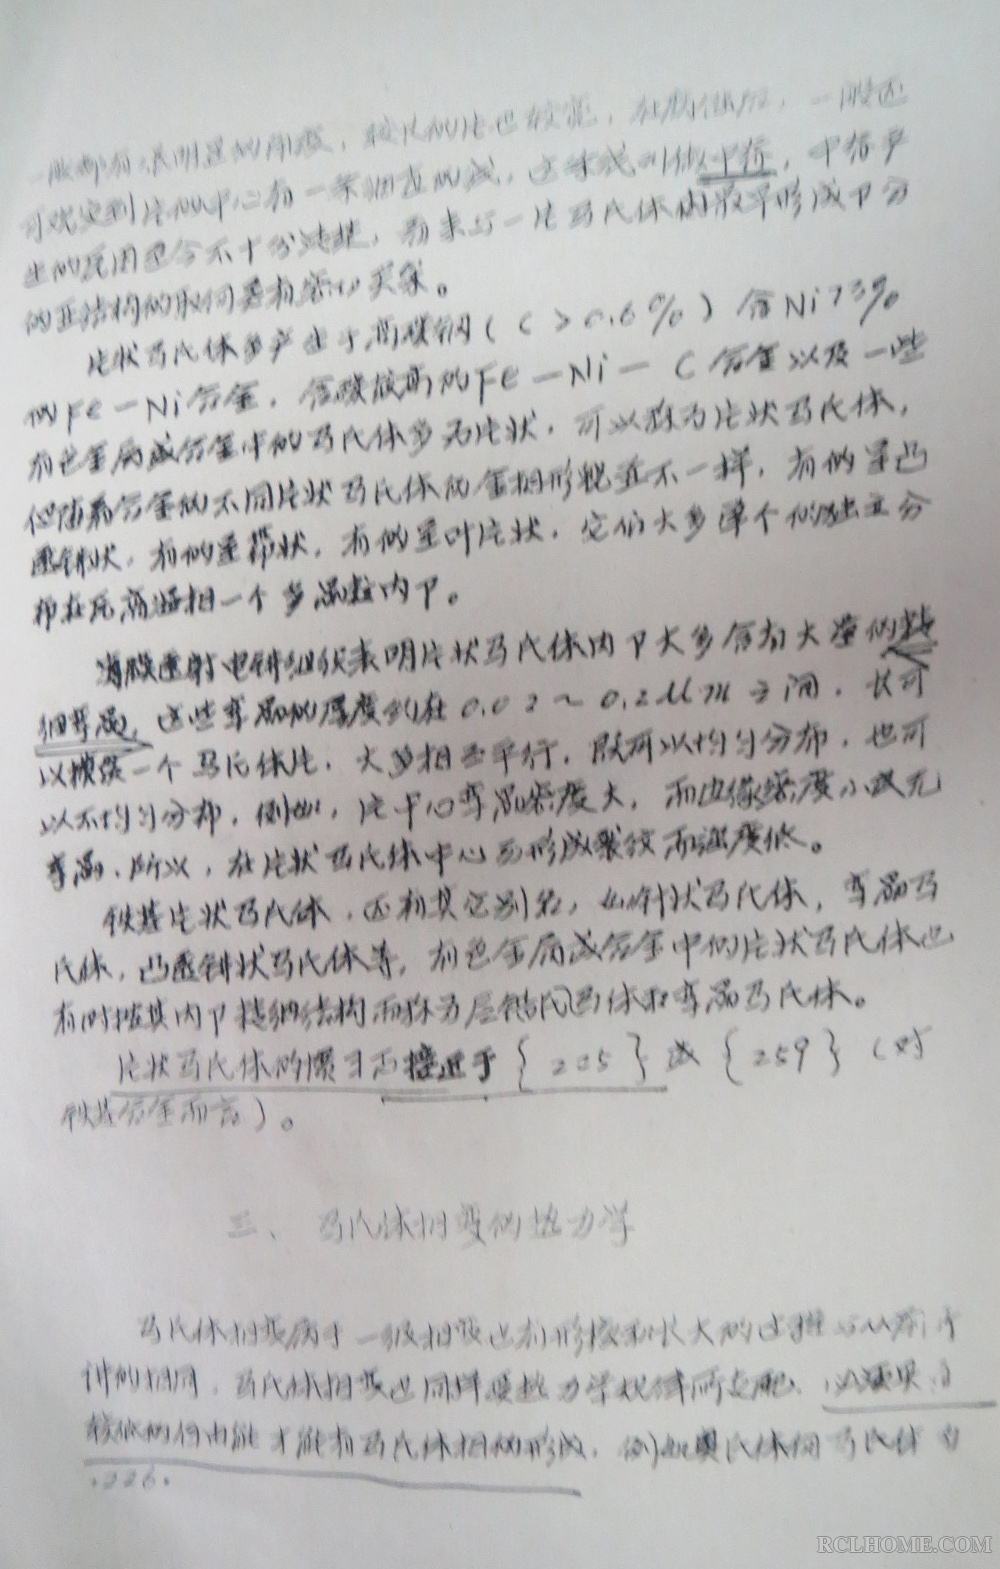 一般都有很明显的角度，较长的片也较宽，在腐蚀后，一般还
可观察到片的中心有一条细直的线，这条线叫做中脊，中脊产
生的原因迄今不十分清楚，看来与一片马氏体的最早形成部分
的亚结构的取向有密切关系。
片状马氏体多产生于高碳钢（C＞0.6%）含Ni73%
的Fe—Ni合金，含碳较高的Fe—Ni—C合金以及一些
有色金属或合金中的马氏体多为片状，可以称为片状马氏体，
但随着合金的不同片状马氏体的金相形貌并不一样，有的呈凸
透镜状，有的呈带状，有的呈叶片状，它们大多单个的独立分
布在先高温相一个多晶粒内部。
薄膜透射电镜组织表明片状马氏体内部大多含有大量的精
细孪晶，这些孪晶的厚度约在0.02～0.2μm之间，长可
以横贯一个马氏体片，大多相互平行，既可以均匀分布，也可
以不均匀分布，例如，片中心孪晶密度大，而边缘密度小或无
孪晶，所以，在片状马氏体中心易形成裂纹而强度低。
铁基片状马氏体，还有其它别名，如针状马氏体，孪晶马
氏体，凸透镜状马氏体等，有色金属或合金中的片状马氏体也
有时按其内部精细结构而称为层错氏马体和孪晶马氏体。
片状马氏体的惯习面接近于{225}或{259}（对
铁基合金而言）。
三、马氏体相变的热力学
马氏体相变属于一级相变也有形核和长大的过程与以前所
讲的相同，马氏体相变也同样受热力学规律所支配，必须具有
较低的自由能才能有马氏体相的形成，例如奥氏体向马氏体为
·226·
RCLHOME.COM